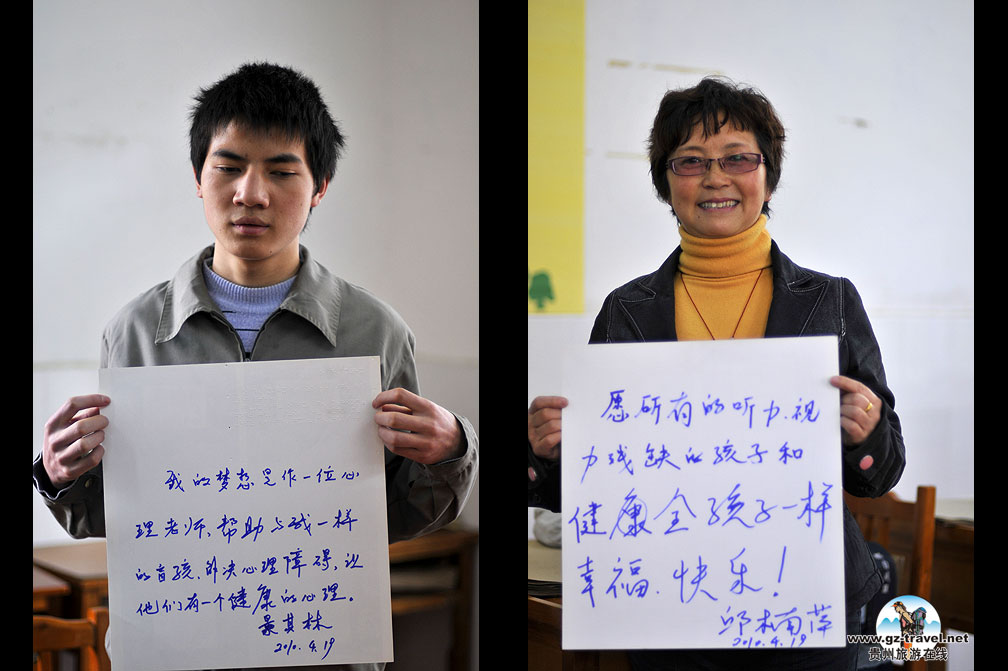 我的梦想是作一位心
理老师、帮助与我一样
的盲孩、解决心理障碍,让
他们有一个健康的心理。
2010.4.19
愿所有的听力、视
力残缺的孩子和
健康全孩子一样
幸福、快乐!
邱楠萍
2010.4.19
www.gz-travel.net
贵州旅游在线